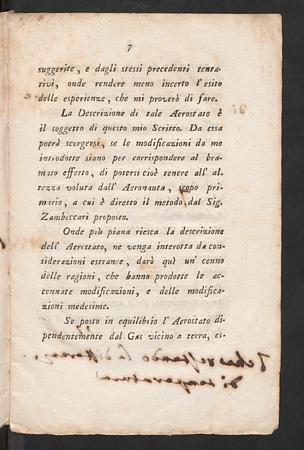 7
suggerite, e dagli stessi precedenti tenta-
tivi, onde rendere meno incerto l'esito
delle esperienze, che mi proverò di fare.
La Descrizione di tale Aerostato è
il soggetto di questo mio Scritto. Da essa
potrà scorgersi, se le modificazioni da me
introdotte siano per corrispondere al bra-
mato effetto, di potersi cioè tenere all' al-
tezza voluta dall' Aeronauta, scopo pri-
mario, a cui è diretto il metodo dal Sig.
Zambeccari proposto.
Onde più piana riesca la descrizione
dell' Aerostato, ne venga interotta da con-
siderazioni estranee, darò quì un' cenno
delle ragioni, che hanno prodotte le ac-
cennate modificazioni, e delle modifica-
zioni medesime.
Se posto in equilibrio l'Aerostato di-
pendentemente dal Gas vicino a terra, es-
di temperatura